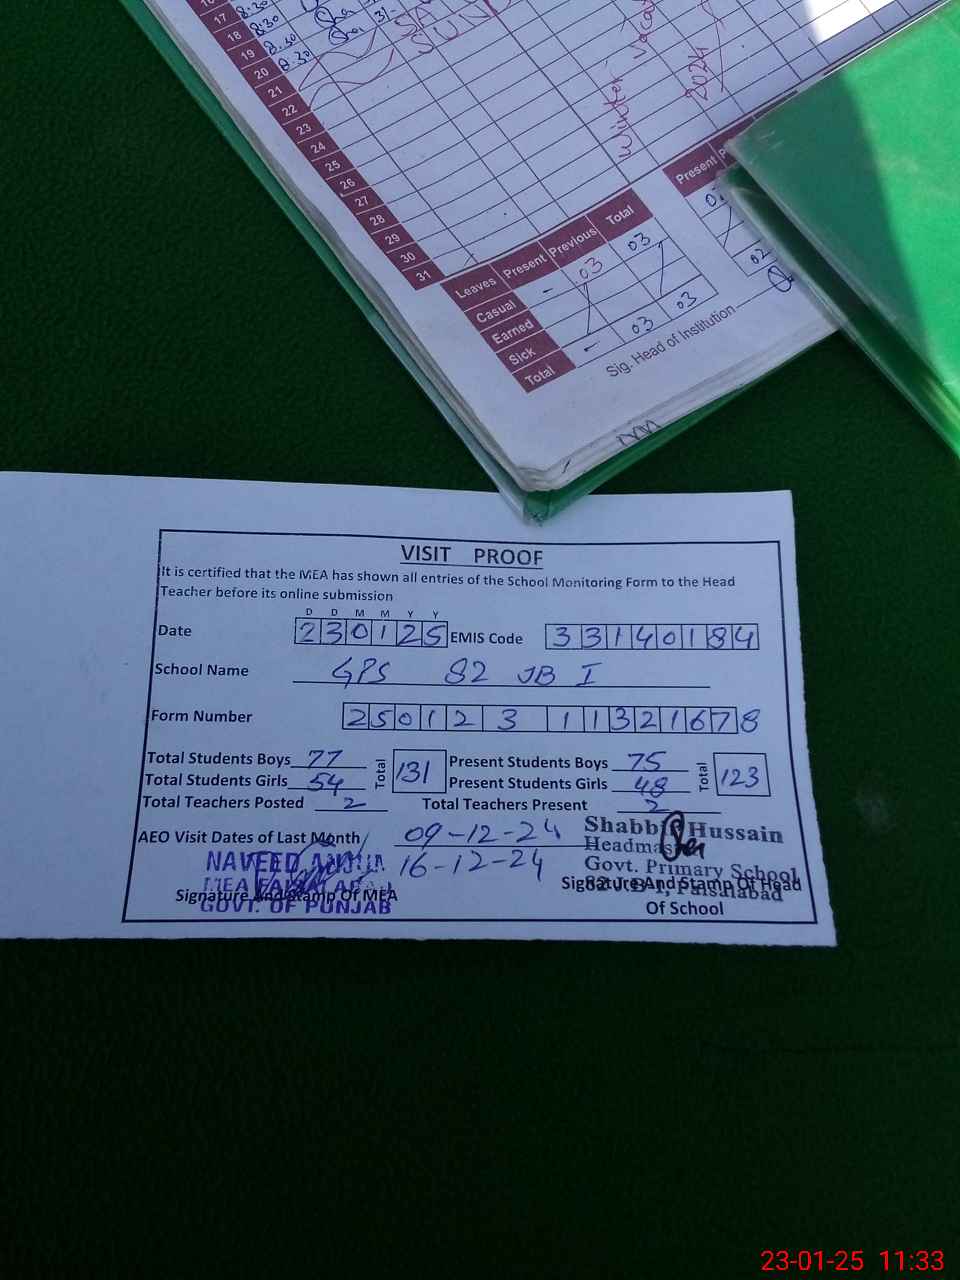 17 8:30
18 8:30
19 8:30
20 8:30
21
22
23
24
25
26
27
28
29
30
31
Winter
2024
Leaves Present Previous Total
Casual - 03 03
Earned
Sick
Total - 03 03
Present
02
Sig. Head of Institution
VISIT PROOF
It is certified that the MEA has shown all entries of the School Monitoring Form to the Head
Teacher before its online submission
D D M M Y Y
Date 230125 EMIS Code 33140184
School Name GPS 82 JB I
Form Number 25012311321678
Total Students Boys 77 Total 131 Present Students Boys 75 Total 123
Total Students Girls 54 Present Students Girls 48
Total Teachers Posted 2 Total Teachers Present 2
AEO Visit Dates of Last Month 09-12-24
16-12-24
NAVEED
MEA FAISALABAD
GOVT. OF PUNJAB
Signature And Stamp Of MEA
Shabbir Hussain
Headmaster
Govt. Primary School
82 J.B-I, Faisalabad
Signature And Stamp Of Head
Of School
23-01-25 11:33